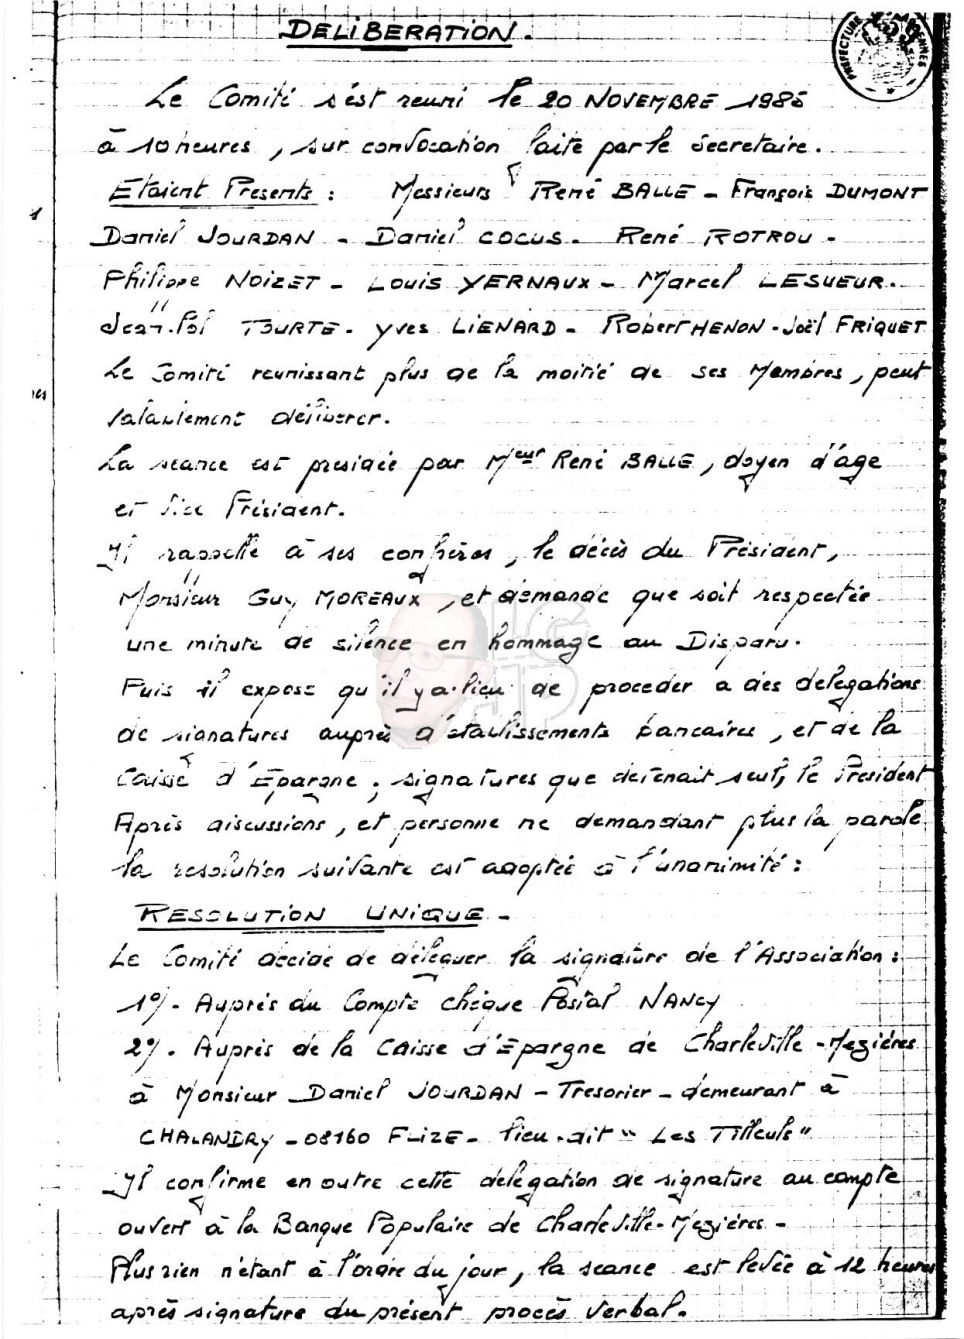 DELIBERATION.
PREFECTURE ARDENNES
Le Comité s'est reuni le 20 NOVEMBRE 1985
à 10 heures, sur convocation faite par le Secretaire.
Etaient Presents : Messieurs René BALLE - François DUMONT
Daniel JOURDAN - Daniel COCUS - René ROTROU -
Philippe NOIZET - Louis YERNAUX - Marcel LESUEUR.
Jean-Pol TOURTE - Yves LIENARD - Robert HENON - Joël FRIQUET
Le Comité reunissant plus de la moitié de ses Membres, peut
valablement déliberer.
La seance est presidée par Meur René BALLE, doyen d'age
et Vice Président.
Il rappelle à ses confrères, le décès du Président,
Monsieur Guy MOREAUX, et demande que soit respectée
une minute de silence en hommage au Disparu.
Puis il expose qu'il y a lieu de proceder a des delegations
de signatures auprès d'établissements bancaires, et de la
Caisse d'Epargne ; signatures que detenait seul, le President
Après discussions, et personne ne demandant plus la parole
la resolution suivante est adoptée à l'unanimité :
RESOLUTION UNIQUE -
Le Comité decide de déleguer la signature de l'Association :
1°/- Auprès du Compte Chèque Postal NANCY
2°/. Auprès de la Caisse d'Epargne de Charleville-Mezières
à Monsieur Daniel JOURDAN - Tresorier - demeurant à
CHALANDRY - 08160 FLIZE - lieu-dit " Les Tilleuls "
Il confirme en outre cette delegation de signature au compte
ouvert à la Banque Populaire de Charleville-Mezières -
Plus rien n'étant à l'ordre du jour, la seance est levée à 12 heures
après signature du présent procès verbal.